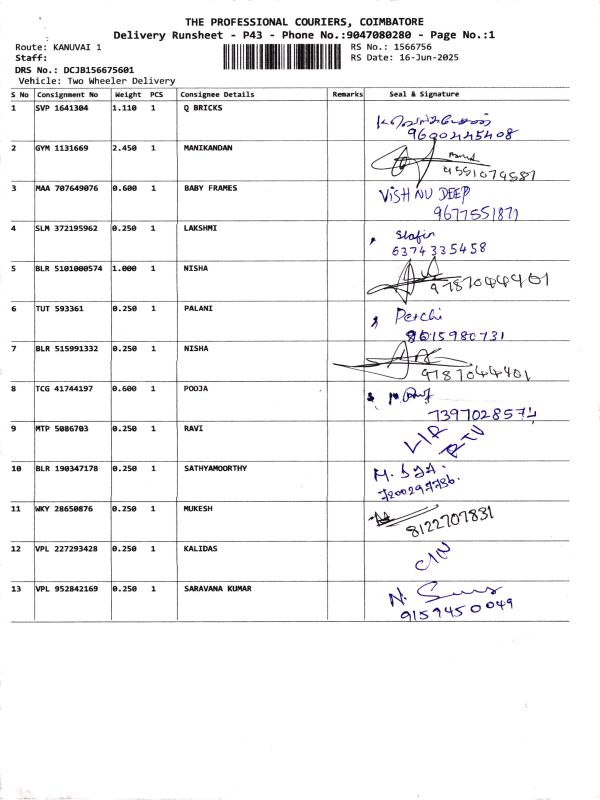 THE PROFESSIONAL COURIERS, COIMBATORE
Delivery Runsheet - P43 - Phone No.:9047080280 - Page No.:1
Route: KANUVAI 1 RS No.: 1566756
Staff: RS Date: 16-Jun-2025
DRS No.: DCJB156675601
Vehicle: Two Wheeler Delivery
S No Consignment No Weight PCS Consignee Details Remarks Seal & Signature
1 SVP 1641304 1.110 1 Q BRICKS
9600445408
2 GYM 1131669 2.450 1 MANIKANDAN
9551079581
3 MAA 707649076 0.600 1 BABY FRAMES VISHNU DEEP
9677551871
4 SLM 372195962 0.250 1 LAKSHMI
6374335458
5 BLR 5101000574 1.000 1 NISHA
9787044401
6 TUT 593361 0.250 1 PALANI Petchi
8015980731
7 BLR 515991332 0.250 1 NISHA
9787044401
8 TCG 41744197 0.600 1 POOJA
7397028574
9 MTP 5086703 0.250 1 RAVI
10 BLR 190347178 0.250 1 SATHYAMOORTHY
7200297736.
11 WKY 28650876 0.250 1 MUKESH
8122707831
12 VPL 227293428 0.250 1 KALIDAS C/N
13 VPL 952842169 0.250 1 SARAVANA KUMAR
9159450049